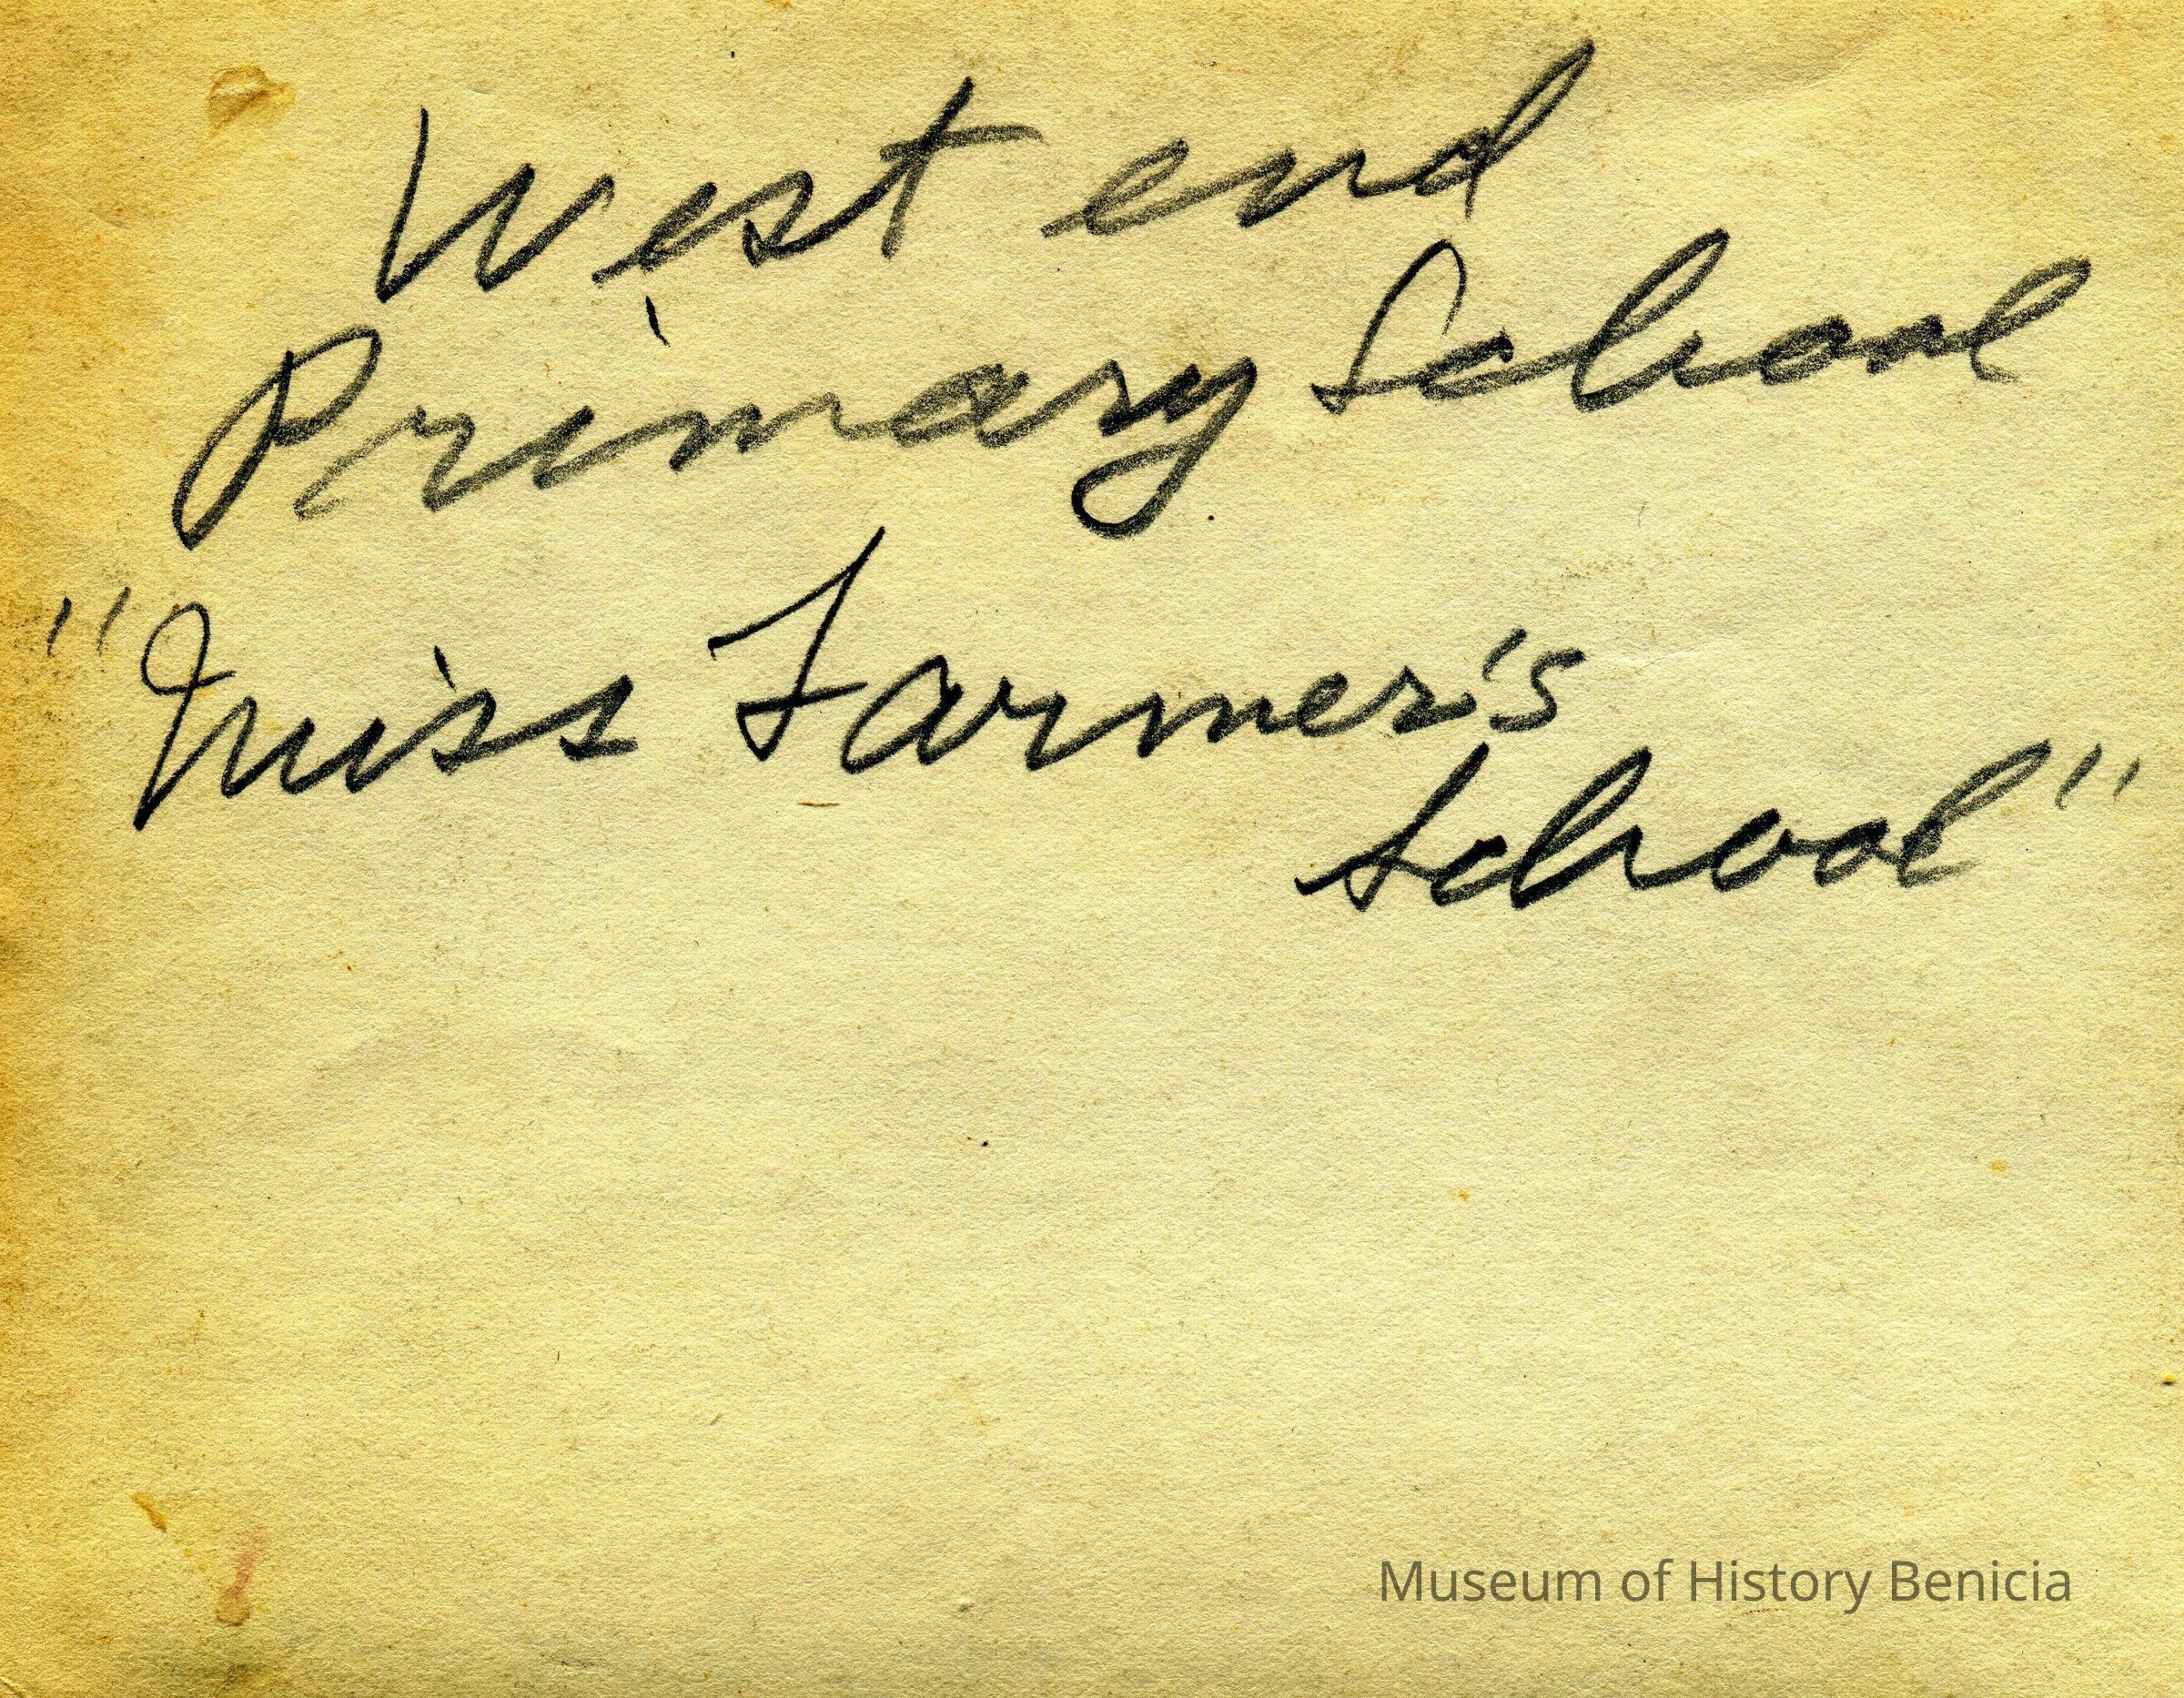 West end
Primary School
"Miss Farmer's
School"
Museum of History Benicia